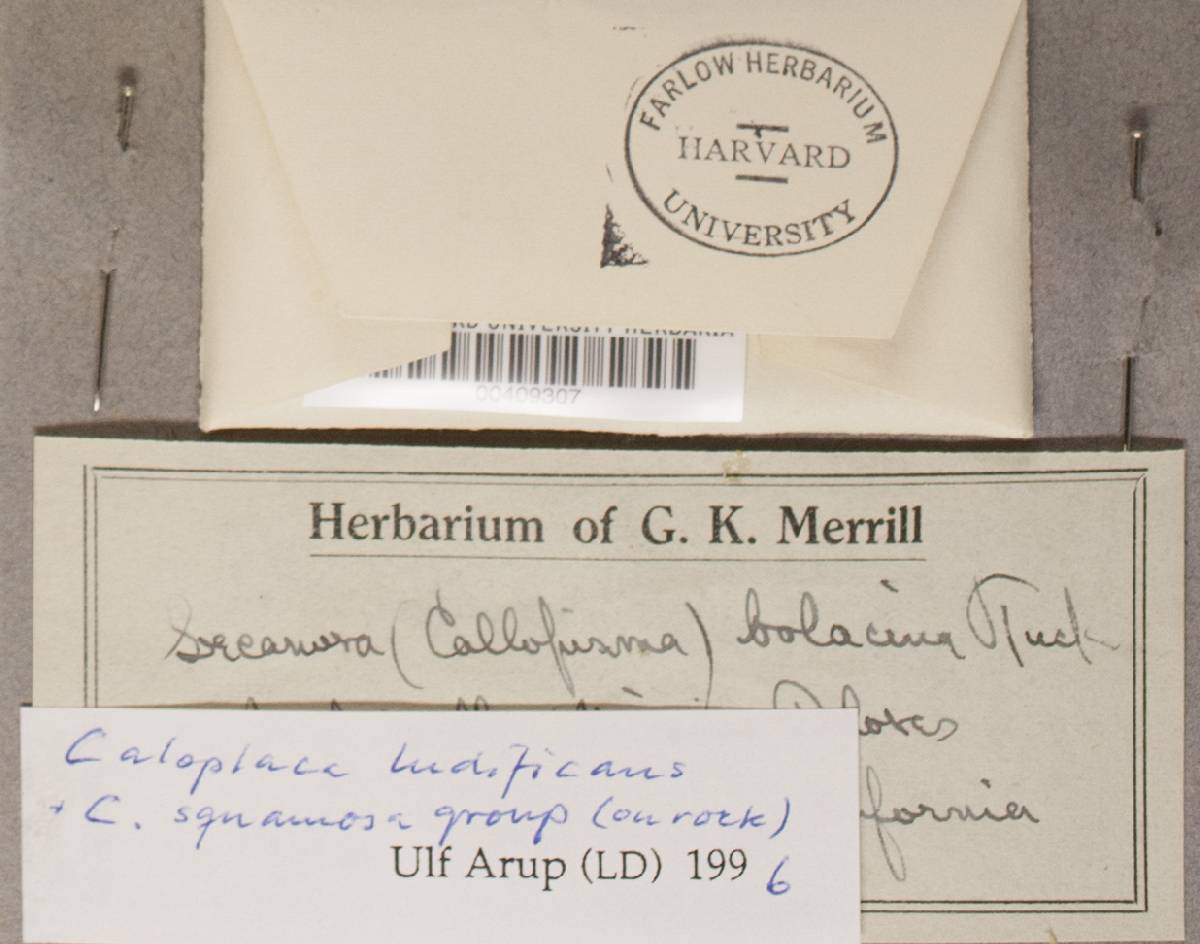 FARLOW HERBARIUM
HARVARD
UNIVERSITY
RD UNIVERSITY HERBARIA
00409307
Herbarium of G. K. Merrill
Lecanora (Callopisma) bolacina Tuck
Caloplaca ludificans
+ C. squamosa group (on rock)
fornia
Ulf Arup (LD) 1996